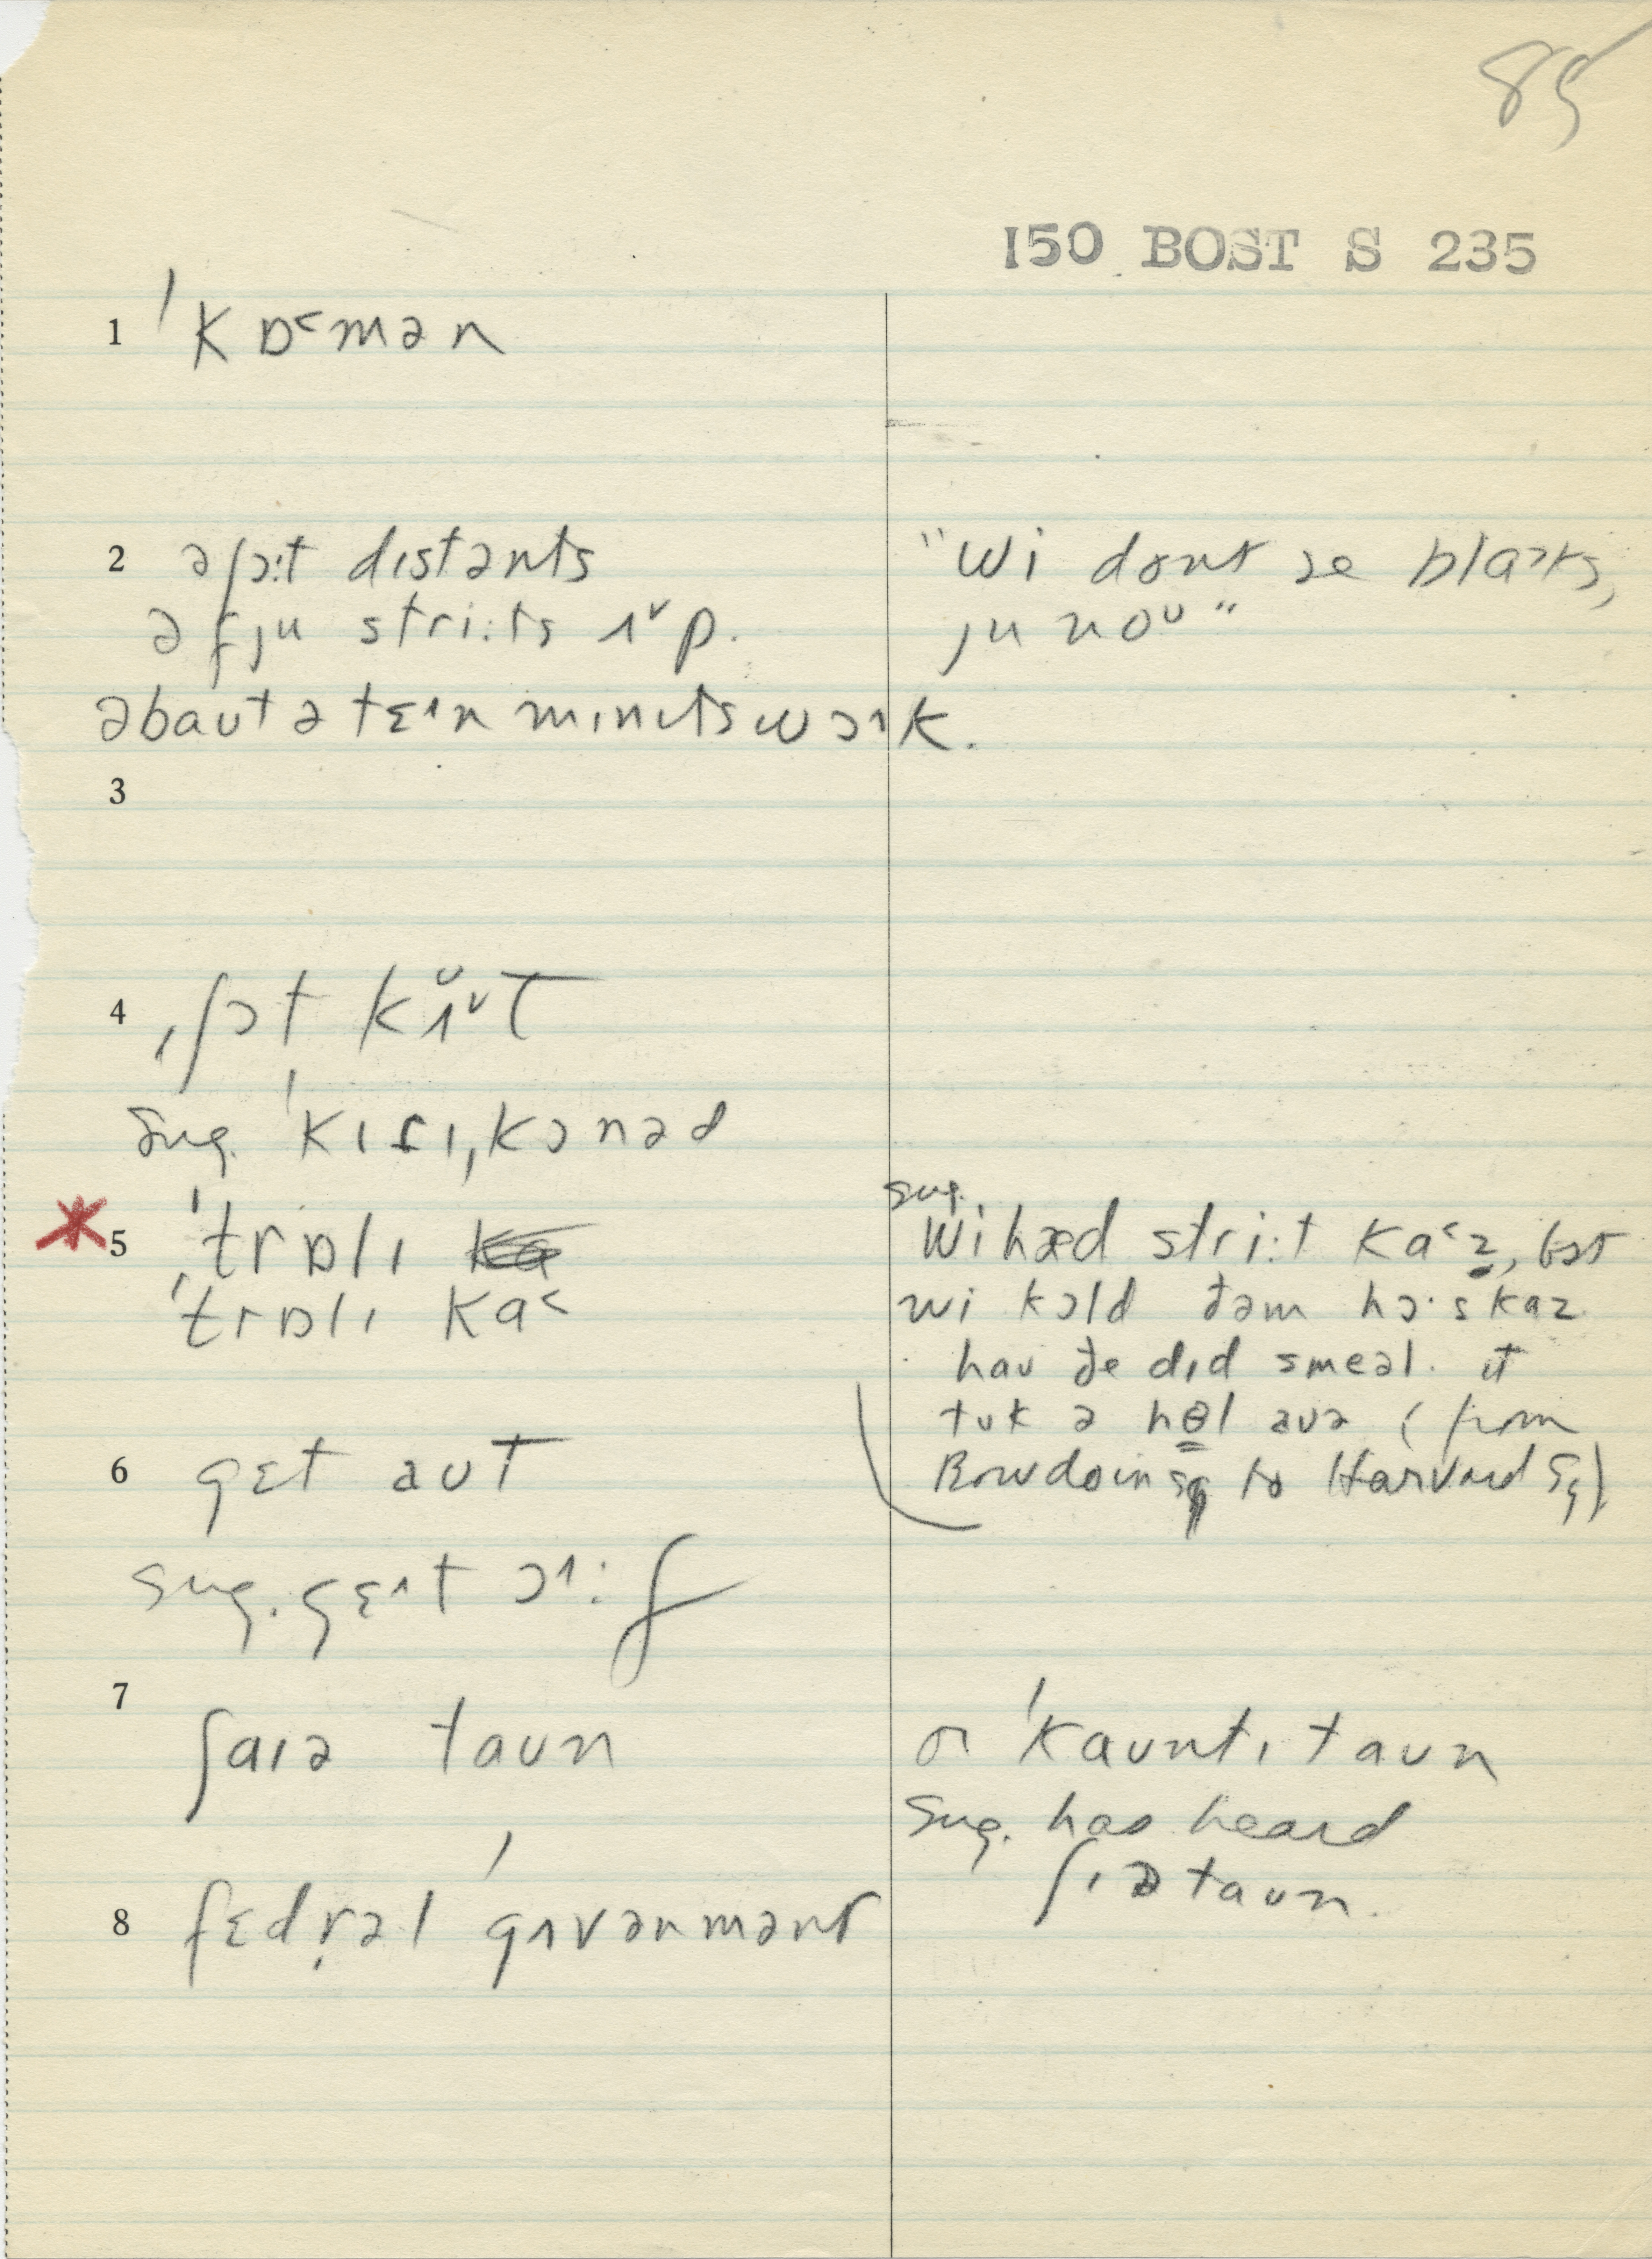 85
150 BOST S 235
1 ˈkɒ˂mən
2 ə ʃɔ:t dɪstənts
ə fju stri:ts ʌ˅p.
əbaʊt ə tɛ˄n mɪnɪts wɔ˄k.
"wi dont se blɒ˃ks,
ju noʊ"
3
4 ˌʃɔt kʌ˅t
sug. ˈkɪtɪˌkɔnəd
5 ˈtrɒlɪ
ˈtrɒlɪ ka˂
sug.
wi hæd stri:t ka˂z, bət
wi kɔld ðəm hɔ·s kaz
haʊ ðe dɪd smeəl. ɪt
tʊk ə hɵl aʊə (from
Bowdoin Sq to Harvard Sq)
6 gɛt aʊt
sug. gɛ˄t ɔ˄:f
7 ʃaɪə taʊn
or ˈkaʊntɪ taʊn
sug. has heard
ʃɪə taʊn.
8 fɛdr̩əl ˈgʌvənmənt